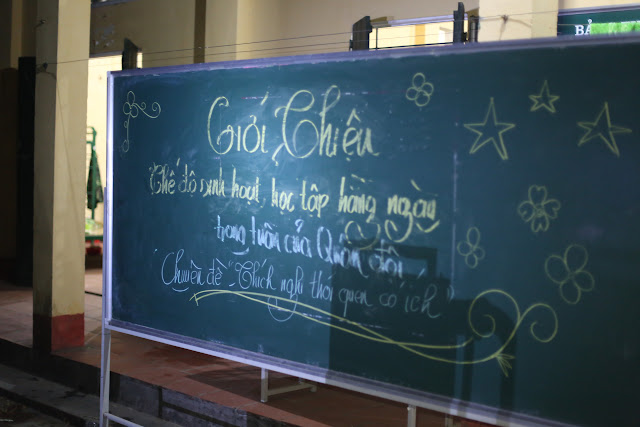 BẢ
Giới Thiệu
Chế độ sinh hoạt, học tập hằng ngày
trong tuần của Quân đội
Chuyên đề "Thích nghi thói quen có ích"